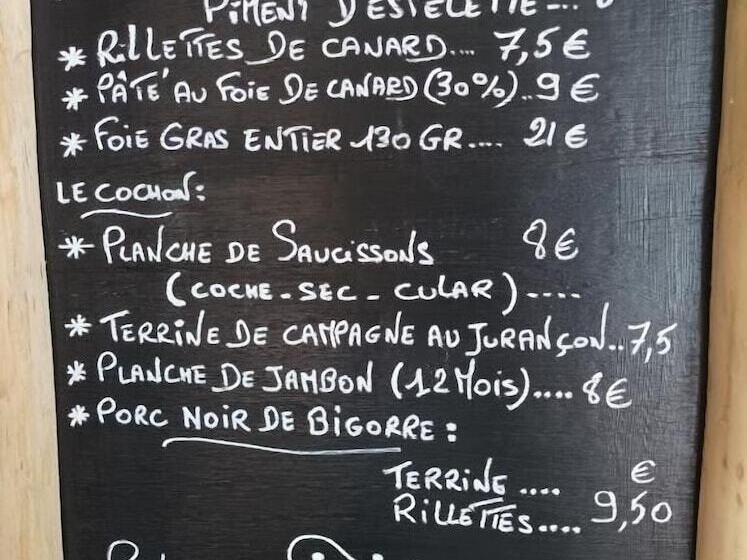 PIMENT D'ESPELETTE....
* RILLETTES DE CANARD... 7,5 €
* PÂTÉ AU FOIE DE CANARD (30%).. 9 €
* FOIE GRAS ENTIER 130 GR.... 21 €
LE COCHON:
* PLANCHE DE SAUCISSONS 8 €
(COCHE-SEC-CULAR)....
* TERRINE DE CAMPAGNE AU JURANÇON.. 7,5
* PLANCHE DE JAMBON (12 MOIS).... 8 €
* PORC NOIR DE BIGORRE:
TERRINE.... €
RILLETTES.... 9,50